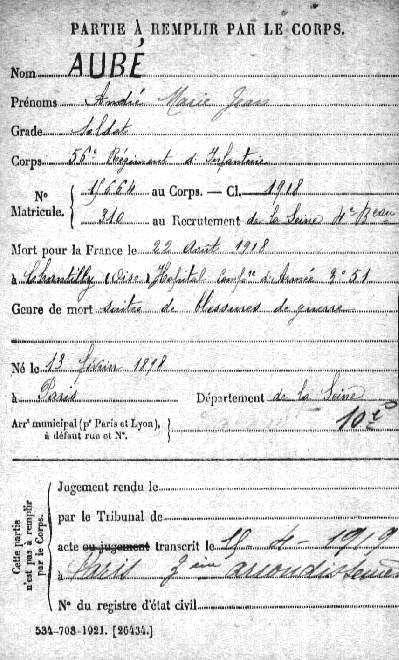 PARTIE À REMPLIR PAR LE CORPS.
Nom AUBÉ
Prénoms André Marie Jean
Grade Soldat
Corps 56e Régiment d'Infanterie
N° Matricule. 15664 au Corps. — Cl. 1918
310 au Recrutement de la Seine 4e Beau
Mort pour la France le 22 août 1918
à Chantilly (Oise) Hôpital d'Armée N° 51
Genre de mort suites de blessures de guerre
Né le 13 février 1898
à Paris Département de la Seine
Arrt municipal (pr Paris et Lyon), à défaut rue et N°. 10e
Cette partie n'est pas à remplir par le Corps.
Jugement rendu le
par le Tribunal de
acte ou jugement transcrit le 15-4-1919
à Paris 2ème arrondissement
N° du registre d'état civil
534-708-1921. [26434.]